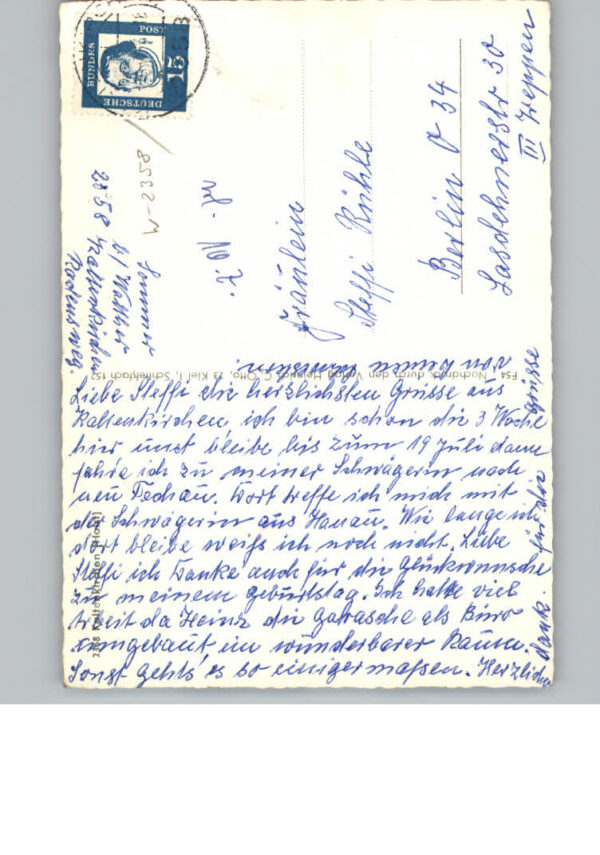 DEUTSCHE
BUNDES
POST
15
W-2358
Sommer
b/
2358 Kaltenkirchen
weg.
Fräulein
Steffi Rühle
Berlin O 34
Lasdehnerstr 30
III Treppen
FS4 Nachdruck durch den Verlag Heinrich C. Otto, 23 Kiel 1, Schließfach 152
2358 Kaltenkirchen (Holst)
Liebe Steffi die herzlichsten Grüsse aus
Kaltenkirchen, ich bin schon die 3 Woche
hier und bleibe bis zum 19 Juli dann
fahre ich zu meiner Schwägerin nach
neu Techau. Dort treffe ich mich mit
der Schwägerin aus Hanau. Wie lange ich
dort bleibe weiß ich noch nicht. Liebe
Steffi ich Danke auch für die Glückwünsche
zu meinem geburtstag. Ich hatte viel
Arbeit da Heinz die garasche als Büro
umgebaut, ein wunderbarer Raum.
Sonst gehts es so einigermaßen. Herzlichen
Dank. für die Grüsse
von